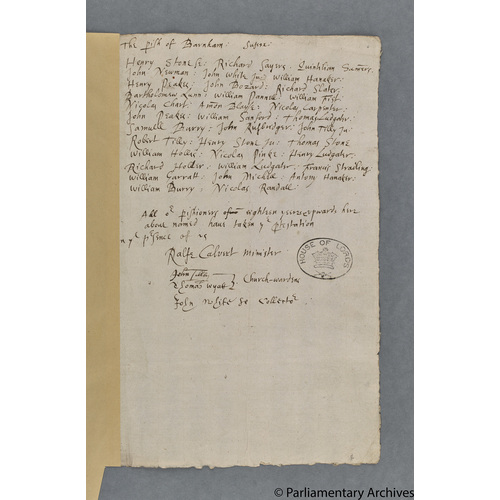 The pish of Barnham: Sussex
Henry Stone se: Richard Sayers: Quintilian Sumers:
John Newman: John White Jun: William Hanaker:
Henry Peake: John Bozard: Richard Slater:
Bartholomew Lunn: William Pannell: William
Nicolas Chart: Anton Blake: Nicolas Carpenter:
John Peake: William Sanford: Thomas Ludgater:
Samuell Barry: John Rutbridger: John Tilly Ju:
Robert Tilly: Henry Stone Ju: Thomas Stone
William Nicolas Pinke: Henry Ludgater:
Richard Holder: William Ludgater: Francis Stradling
William Garratt: John Michell: Antony Hanaker:
William Burry: Nicolas Randall:
All ye pishioners of eighteen yeers upwards here
above named have taken ye ptestation
in ye psence of us
Ralfe Calvert minister
John Tilly
Thomas Wyatt } Church-wardens
John White se Collector
HOUSE OF LORDS
© Parliamentary Archives